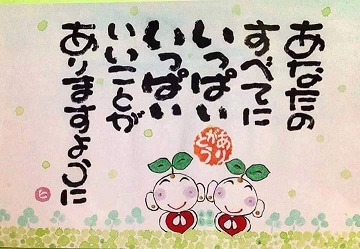 あなたの
すべてに
いっぱい
いっぱい
いいことが
ありますように
ありがとう
と